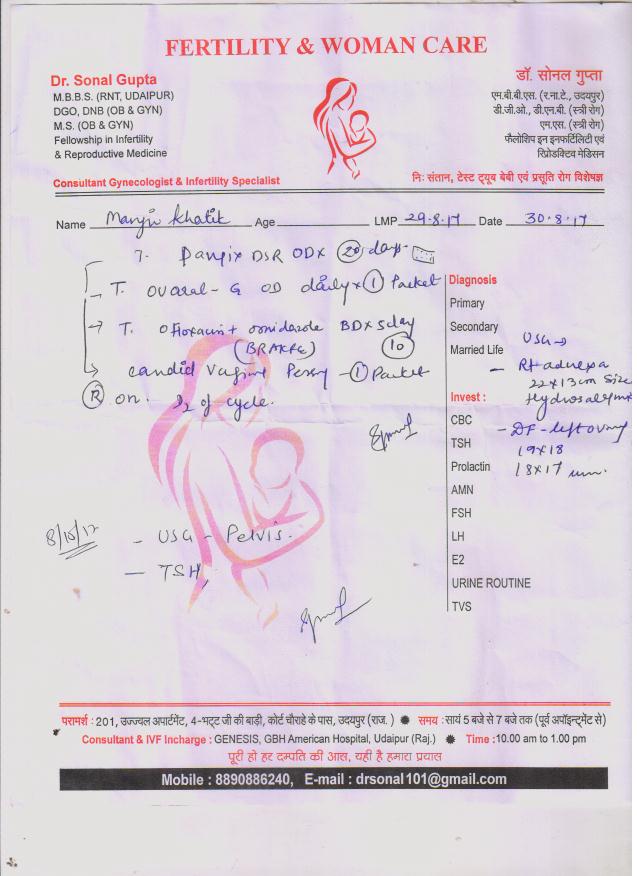 FERTILITY & WOMAN CARE
Dr. Sonal Gupta
M.B.B.S. (RNT, UDAIPUR)
DGO, DNB (OB & GYN)
M.S. (OB & GYN)
Fellowship in Infertility
& Reproductive Medicine
Consultant Gynecologist & Infertility Specialist
डॉ. सोनल गुप्ता
एम.बी.बी.एस. (र.ना.टे., उदयपुर)
डी.जी.ओ., डी.एन.बी. (स्त्री रोग)
एम.एस. (स्त्री रोग)
फैलोशिप इन इनफर्टिलिटी एवं
रिप्रोडक्टिव मेडिसन
निः संतान, टेस्ट ट्यूब बेबी एवं प्रसूति रोग विशेषज्ञ
Name Manju Khatik Age LMP 29.8.17 Date 30.8.17
T. DSR OD x 20 days
T. ovaral-G OD daily x 1 Packet
T. ofloxacin + ornidazole BD x 5 day
10
candid Vagina Pessary - 1 Packet
R on D2 of cycle.
8/10/17
- USG - Pelvis.
- TSH
Diagnosis
Primary
Secondary
Married Life
USG →
- Rt adnexa
22x13 size
Invest :
CBC
- DF - left ovary
TSH 19x18
Prolactin 18x17 mm.
AMN
FSH
LH
E2
URINE ROUTINE
TVS
परामर्श : 201, उज्ज्वल अपार्टमेंट, 4-भट्ट जी की बाड़ी, कोर्ट चौराहे के पास, उदयपुर (राज. ) समय : सायं 5 बजे से 7 बजे तक (पूर्व अपॉइन्ट्मेंट से)
Consultant & IVF Incharge : GENESIS, GBH American Hospital, Udaipur (Raj.) Time : 10.00 am to 1.00 pm
पूरी हो हर दम्पति की आस, यही है हमारा प्रयास
Mobile : 8890886240, E-mail : drsonal101@gmail.com